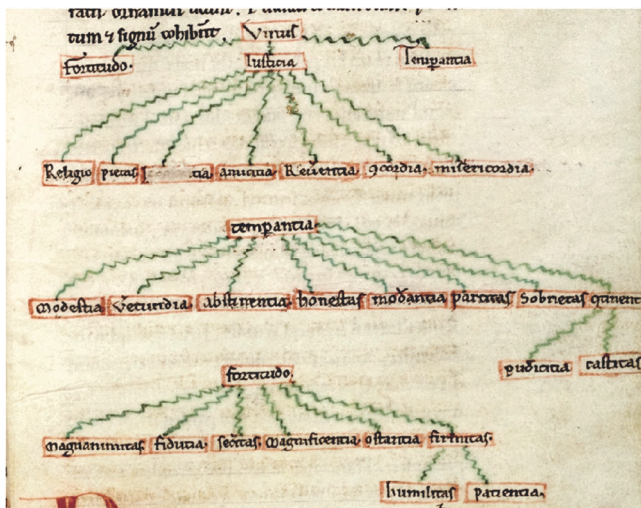 tum & signū cohibent. Virtus
fortitudo. Iusticia Temperantia
Religio pietas tia amicitia Reuerentia ꝯcordia misericordia
temperantia
modestia Verecundia abstinentia honestas moderantia parcitas Sobrietas ꝯtinen
pudicitia castitas
fortitudo
magnanimitas fiducia secitas magnificentia ꝯstantia firmitas.
humilitas patientia.